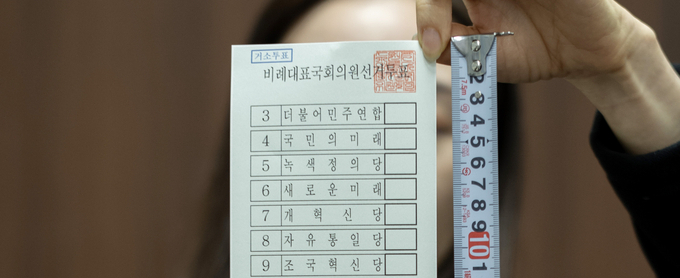 거소투표
비례대표국회의원선거투표
3 더불어민주연합
4 국민의미래
5 녹색정의당
6 새로운미래
7 개혁신당
8 자유통일당
9 조국혁신당
2
3
4
5
6
7
8
9
10
1